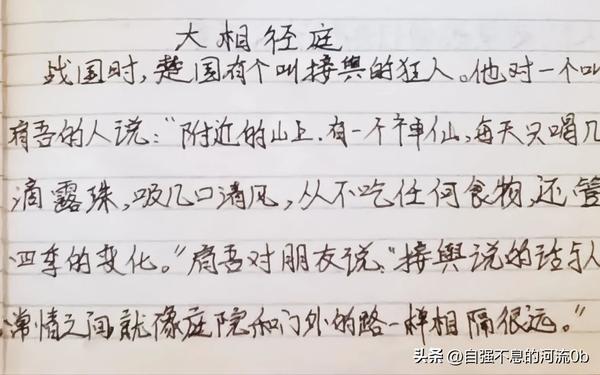 大相径庭
战国时,楚国有个叫接舆的狂人。他对一个叫
肩吾的人说:"附近的山上,有一个神仙,每天只喝几
滴露珠,吸几口清风,从不吃任何食物,还管
四季的变化。"肩吾对朋友说:"接舆说的话与人
常情之间就像庭院和门外的路一样相隔很远。"
头条 @自强不息的河流0b